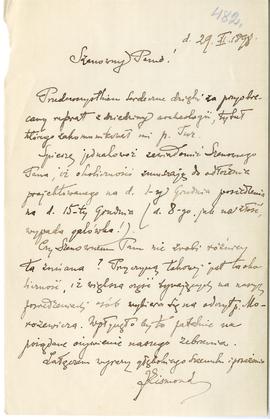 482.
d. 29. XI. 1898
Szanowny Panie!
Przedewszystkiem serdeczne dzięki za przyobie-
cany referat z dziedziny archeologii, tytuł
którego zakomunikował mi p. Tur.
Spieszę jednakowoż zawiadomić Szanownego
Pana, iż okoliczności zmuszają do odłożenia
projektowanego na d. 1-go Grudnia posiedzenia
na d. 15-ty Grudnia (d. 8-go, jak na złość,
wypada galówka!).
Czy Szanownemu Panu nie zrobi różnicy
ta zmiana? Przyczyną takowej jest ta oko-
liczność, iż większa część bywających na naszych
posiedzeniach osób wybiera się na odczyt p. Mo-
rozewicza. Wpłynęłoby to fatalnie na
pożądane ożywienie naszego zebrania.
Załączam wyrazy głębokiego szacunku i poważania
JEismond